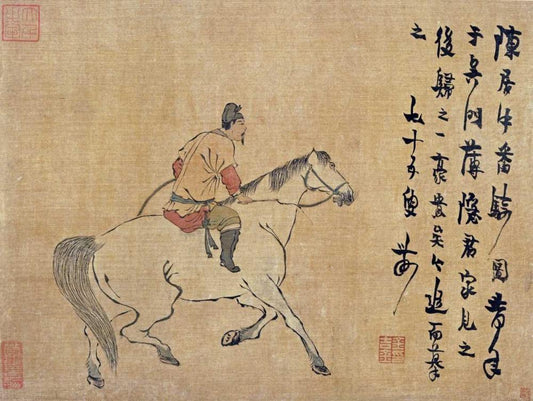 陳居中番騎圖昔年
于吳門薄隱君家見之
後歸之一豪貴矣今追而摹
之 七十五叟